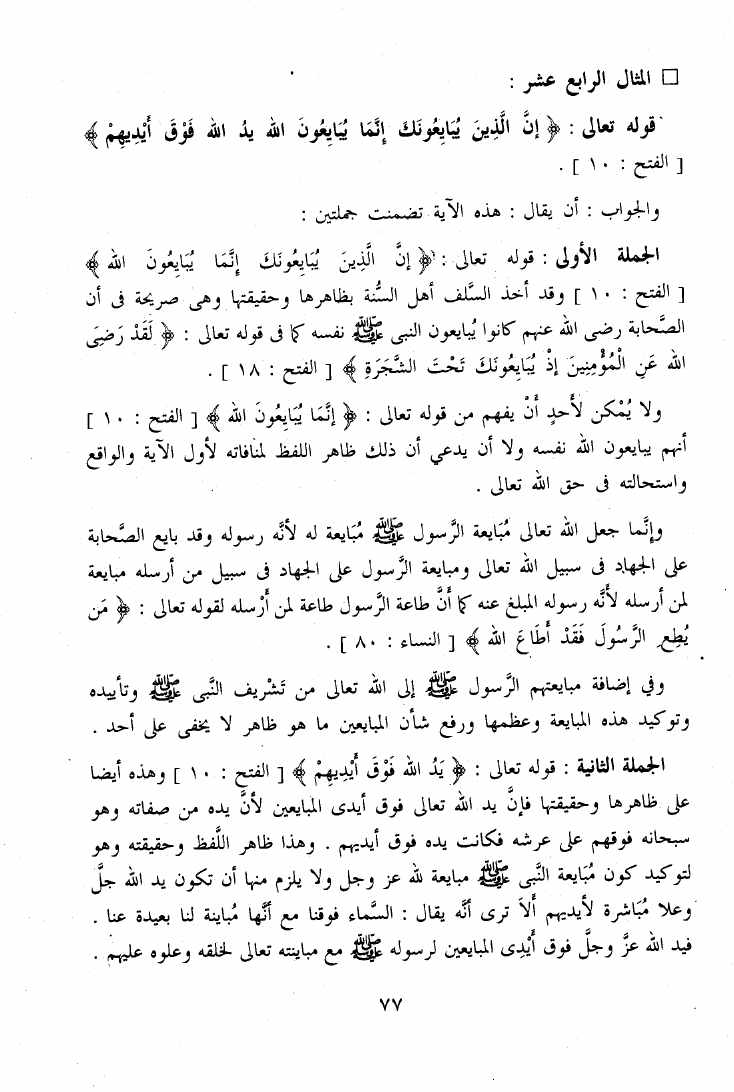 □ المثال الرابع عشر :
قوله تعالى : ﴿ إنَّ الَّذِينَ يُبَايِعُونَكَ إنَّمَا يُبَايِعُونَ الله يدُ الله فَوْقَ أَيْدِيهِمْ ﴾
[ الفتح : ١٠ ] .
والجواب : أن يقال : هذه الآية تضمنت جملتين :
الجملة الأولى : قوله تعالى : ﴿ إنَّ الَّذِينَ يُبَايِعُونَكَ إنَّمَا يُبَايِعُونَ الله ﴾
[ الفتح : ١٠ ] وقد أخذ السَّلف أهل السُّنة بظاهرها وحقيقتها وهى صريحة فى أن
الصَّحابة رضى الله عنهم كانوا يُبايعون النبى ﷺ نفسه كما فى قوله تعالى : ﴿ لَقَدْ رَضِىَ
الله عَنِ الْمُؤْمِنِينَ إذْ يُبَايِعُونَكَ تَحْتَ الشَّجَرَةِ ﴾ [ الفتح : ١٨ ] .
ولا يُمْكن لأَحدٍ أَنْ يفهم من قوله تعالى : ﴿ إنَّمَا يُبَايِعُونَ الله ﴾ [ الفتح : ١٠ ]
أنهم يبايعون الله نفسه ولا أن يدعي أن ذلك ظاهر اللفظ لمنافاته لأول الآية والواقع
واستحالته فى حق الله تعالى .
وإنَّما جعل الله تعالى مُبَايعة الرَّسول ﷺ مُبَايعة له لأنَّه رسوله وقد بايع الصَّحابة
على الجهاد فى سبيل الله تعالى ومبايعة الرَّسول على الجهاد فى سبيل من أرسله مبايعة
لمن أرسله لأنَّه رسوله المبلغ عنه كما أنَّ طاعة الرَّسول طاعة لمن أرْسله لقوله تعالى : ﴿ مَن
يُطِعِ الرَّسُولَ فَقَدْ أَطَاعَ الله ﴾ [ النساء : ٨٠ ] .
وفي إضافة مبايعتهم الرَّسول ﷺ إلى الله تعالى من تَشْريف النَّبى ﷺ وتأييده
وتوكيد هذه المبايعة وعظمها ورفع شأن المبايعين ما هو ظاهر لا يخفى على أحد .
الجملة الثانية : قوله تعالى : ﴿ يَدُ الله فَوْقَ أَيْدِيهِمْ ﴾ [ الفتح : ١٠ ] وهذه أيضا
على ظاهرها وحقيقتها فإنَّ يد الله تعالى فوق أيدى المبايعين لأنَّ يده من صفاته وهو
سبحانه فوقهم على عرشه فكانت يده فوق أيديهم . وهذا ظاهر اللَّفظ وحقيقته وهو
لتوكيد كون مُبَايعة النَّبى ﷺ مبايعة لله عز وجل ولا يلزم منها أن تكون يد الله جلَّ
وعلا مُبَاشرة لأيديهم أَلاَ ترى أنَّه يقال : السَّماء فوقنا مع أنَّها مُباينة لنا بعيدة عنا .
فيد الله عزَّ وجلَّ فوق أَيْدِى المبايعين لرسوله ﷺ مع مباينته تعالى لخلقه وعلوه عليهم .
٧٧